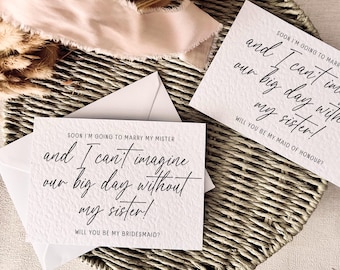 SOON I'M GOING TO MARRY MY MISTER
and I can't imagine
our big day without
my sister!
WILL YOU BE MY BRIDESMAID?
SOON I'M GOING TO MARRY
and I can't im
our big day w
my sister!
WILL YOU BE MY MAID OF HONOUR?